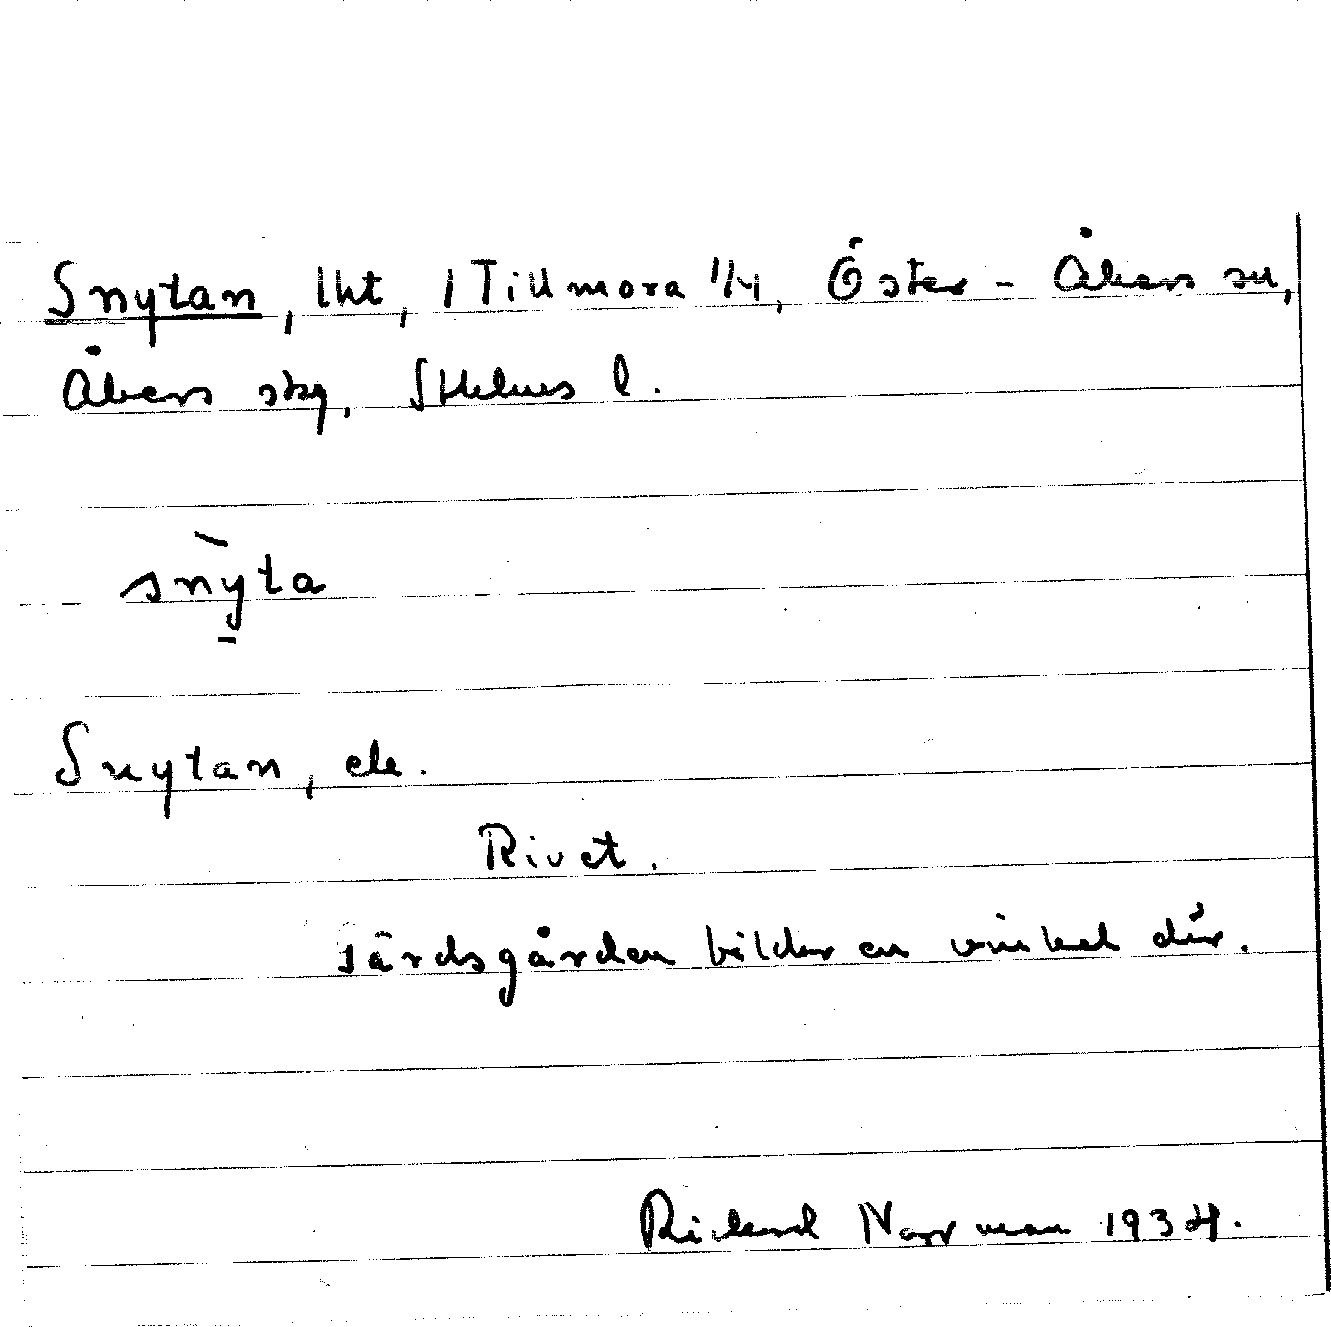 Snytan, lht, 1 Tillmora 1/4, Öster-Åkers sn,
Åkers skg, Sthlms l.
snỳta
Snytan, ele.
Rivet.
Järdsgården bilder en vinkel där.
Rickard Norrman 1934.